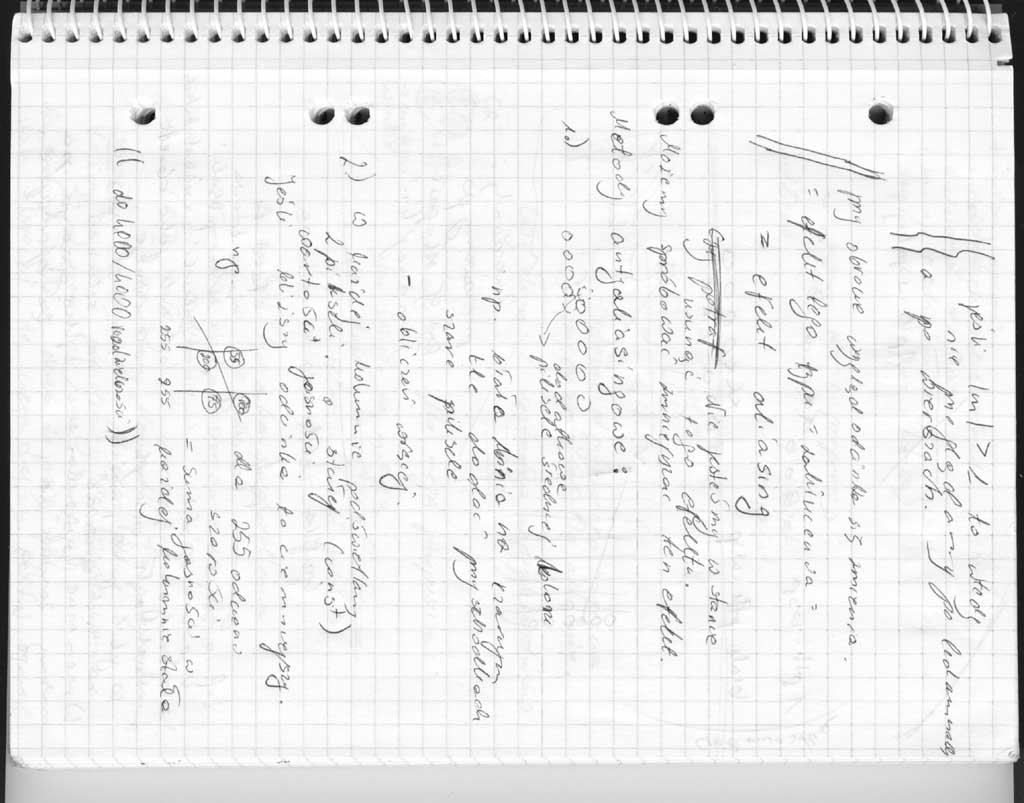 jeśli |m| > 1 to wtedy
nie przeglądamy po kolumnach
a po wierszach.
przy obrocie wygląd odcinka się zmienia.
= efekt tego typu = zakłócenia =
= efekt aliasing
Nie jesteśmy w stanie
usunąć tego efektu.
Możemy spróbować zmniejszać ten efekt.
Metody antyaliasingowe:
1.)
dodatkowe
piksele średniej koloru
np. biała linia na czarnym
tle dodać przy schodkach
szare piksele
- obliczeń więcej.
2.) w każdej kolumnie podświetlamy
2 piksele o stałej (const)
wartości jasności
Jeśli bliższy odcinka to ciemniejszy.
np. dla 255 odcieni
szarości
= suma jasności w
każdej kolumnie stała
255 255
((do 4000/4000 rozdzielczości))